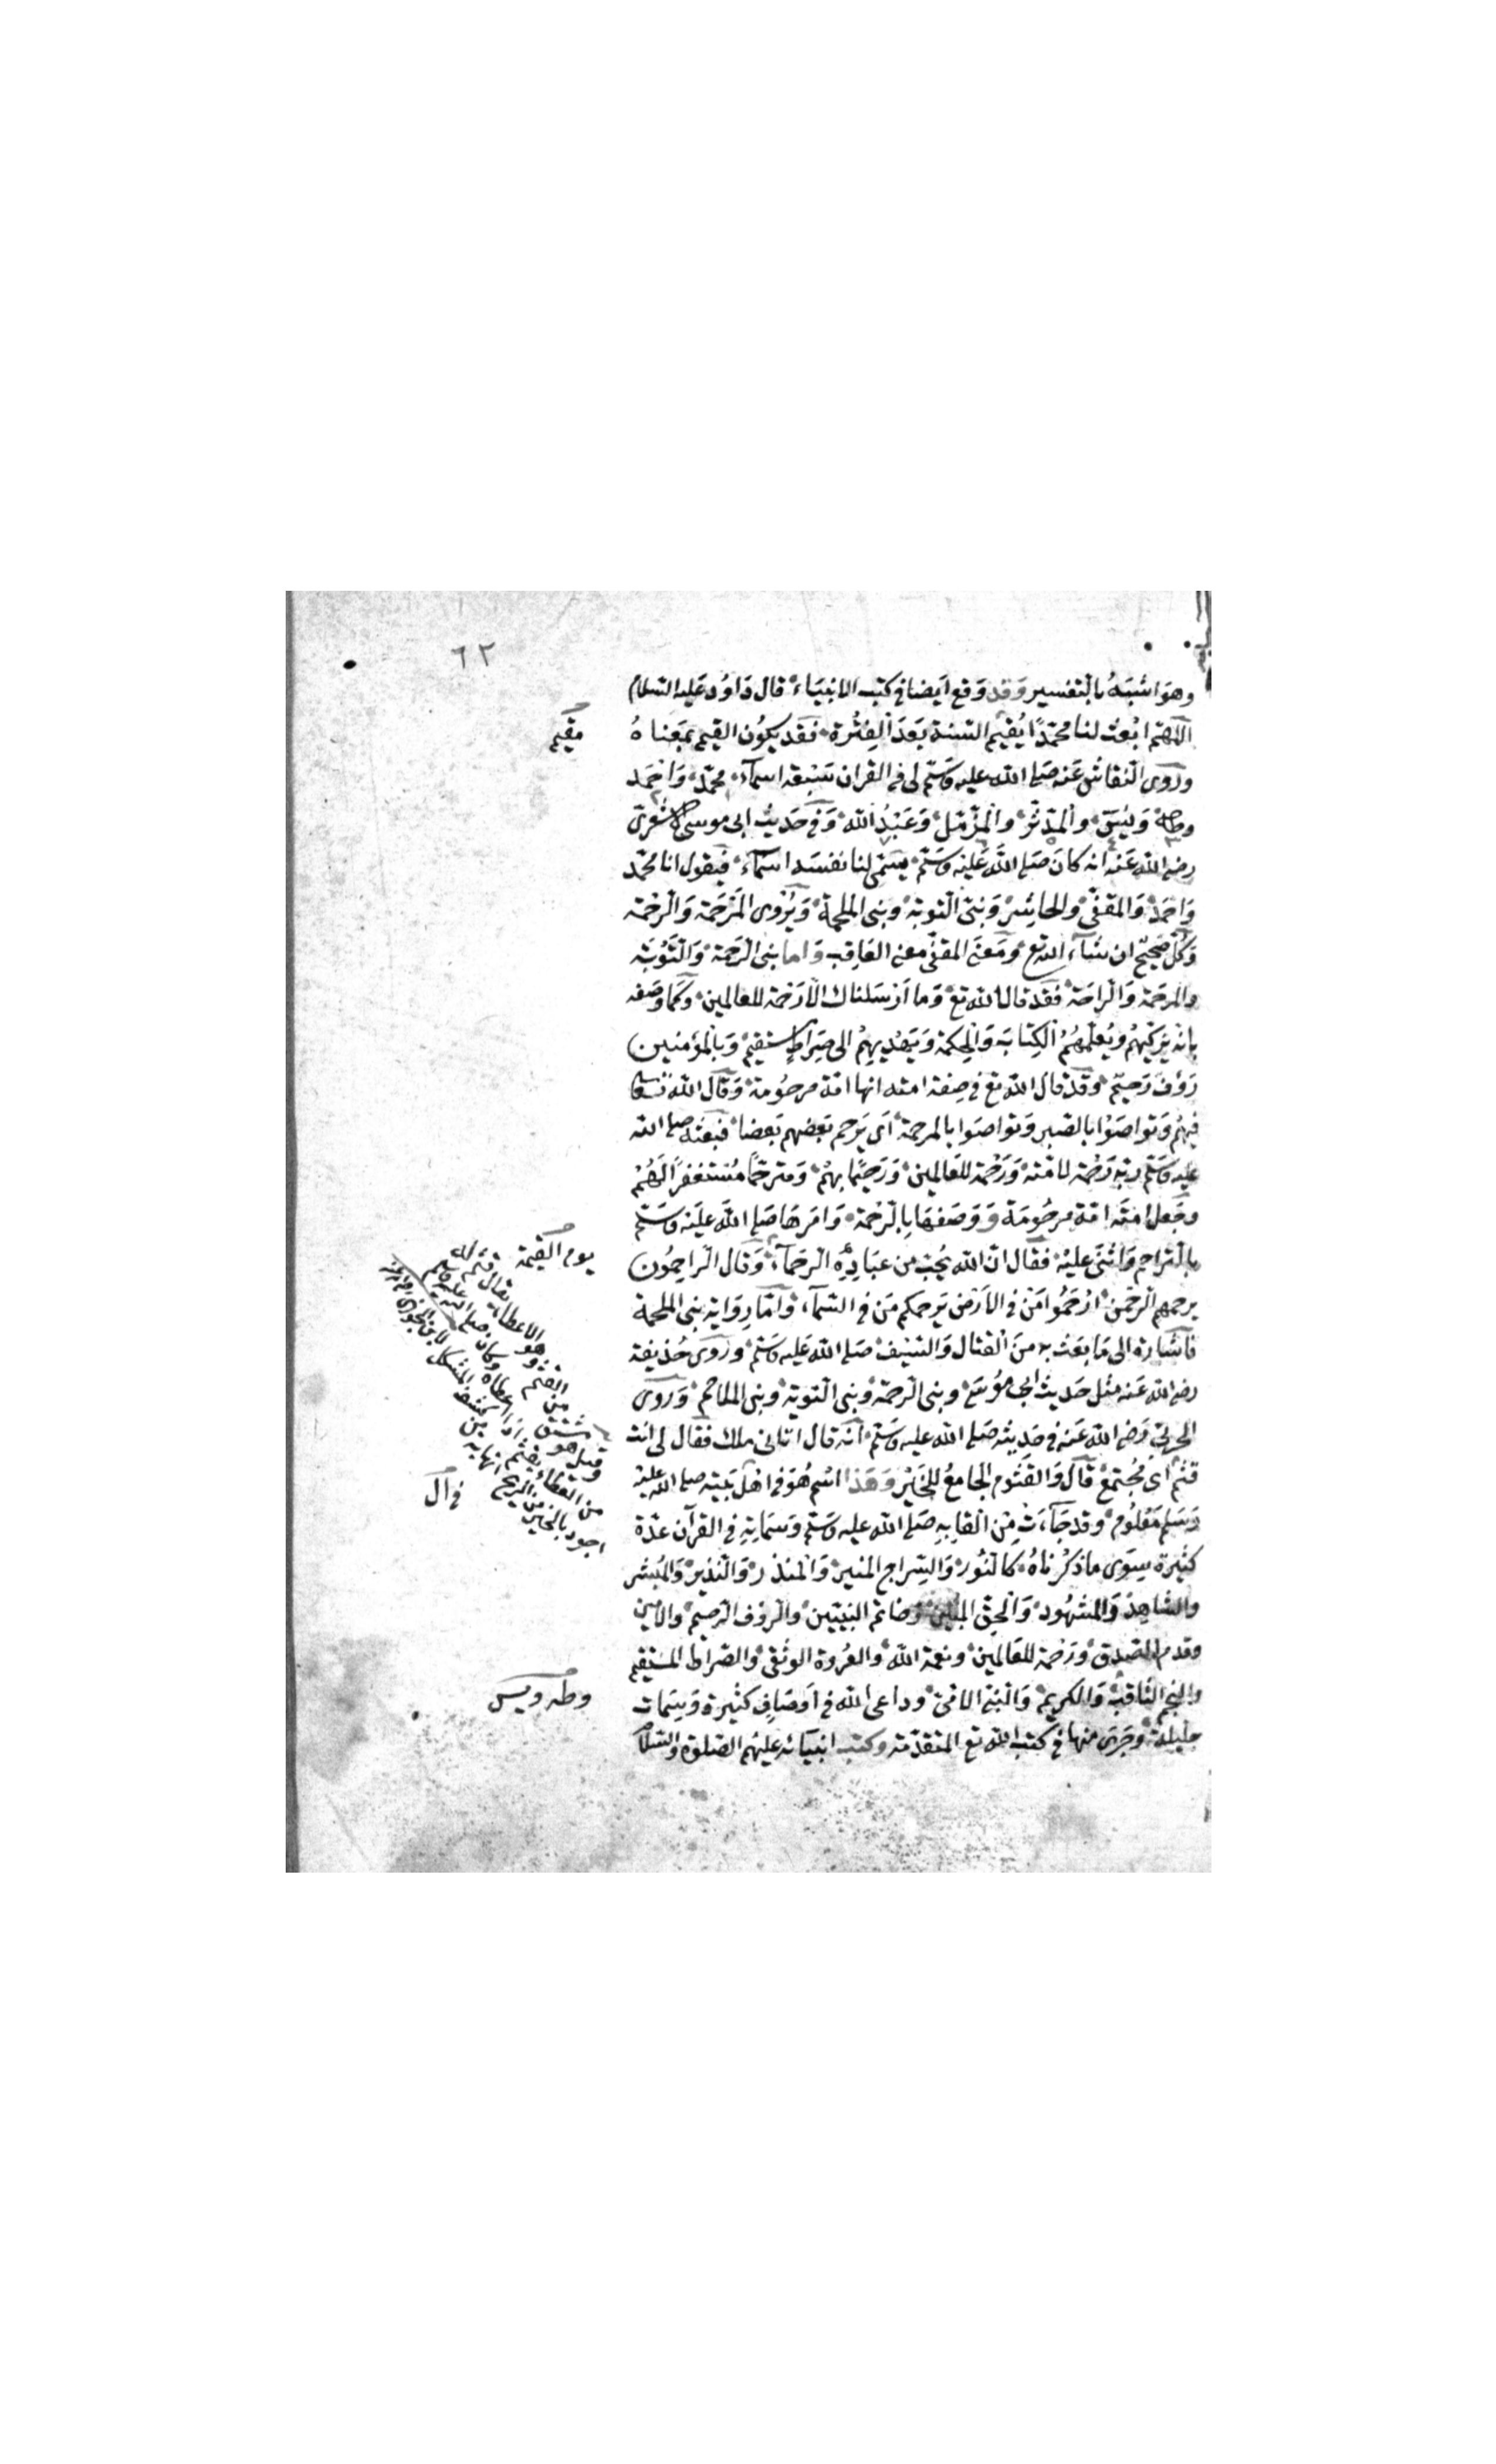 ٦٢
وهو اشبه بالتفسير وقد وقع ايضا في كتب الانبياء قال داود عليه السلام
اللهم ابعث لنا محمدا يقيم السنة بعد الفترة فقد يكون القيم بمعناه
مقيم
وروى النقاش عنه صلى الله عليه وسلم لي في القران سبعة اسماء محمد واحمد
وطه ويس والمدثر والمزمل وعبد الله وفي حديث ابي موسى الاشعري
رضي الله عنه انه كان صلى الله عليه وسلم يسمي لنا نفسه اسماء فيقول انا محمد
واحمد والمقفى والحاشر ونبي التوبة ونبي الملحمة ويروى المرحمة والرحمة
وكل صحيح ان شاء الله تع ومعنى المقفى معنى العاقب واما نبي الرحمة والتوبة
والمرحمة والراحة فقد قال الله تع وما ارسلناك الا رحمة للعالمين وكما وصفه
بانه يزكيهم ويعلمهم الكتابة والحكمة ويهديهم الى صراط مستقيم وبالمؤمنين
رؤف رحيم وقد قال الله تع في صفة امته انها امة مرحومة وقال الله تعالى
فيهم وتواصوا بالصبر وتواصوا بالمرحمة اى يرحم بعضهم بعضا فبعثه صلى الله
عليه وسلم ربه رحمة لامته ورحمة للعالمين ورحيما بهم ومترحما مستغفرا لهم
وجعل امته امة مرحومة ووصفها بالرحمة وامرها صلى الله عليه وسلم
بالتراحم واثنى عليه فقال ان الله يحب من عباده الرحماء وقال الراحمون
يوم القيمة
يرحمهم الرحمن ارحموا من في الارض يرحمكم من في السماء واما رواية نبي الملحمة
فاشارة الى ما بعث به من القتال والسيف صلى الله عليه وسلم وروى حذيفة
رضي الله عنه مثل حديث ابي موسى ونبي الرحمة ونبي التوبة ونبي الملاحم وروى
الحربي رضي الله عنه في حديثه صلى الله عليه وسلم انه قال اتاني ملك فقال لي انت
قثم اى مجتمع قال والقثوم الجامع للخير وهذا اسم هو في اهل بيته صلى الله عليه
في آل
وسلم معلوم وقد جاءت من القابه صلى الله عليه وسلم وسماته في القرآن عدة
كثيرة سوى ما ذكرناه كالنور والسراج المنير والمنذر والنذير والمبشر
والشاهد والمشهود والحق المبين وخاتم النبيين والرؤف الرحيم والامين
وقدم الصدق ورحمة للعالمين ونعمة الله والعروة الوثقى والصراط المستقيم
وطه ويس
والنجم الثاقب والكريم والنبي الامي وداعي الله في اوصاف كثيرة وسمات
جليلة وجرى منها في كتب الله تع المتقدمة وكتب انبيائه عليهم الصلوة والسلام
وقيل هو مشتق من القثم وهو الاعطاء يقال قثم له
من العطاء
وكان صلى الله عليه وسلم
اجود بالخير من الريح